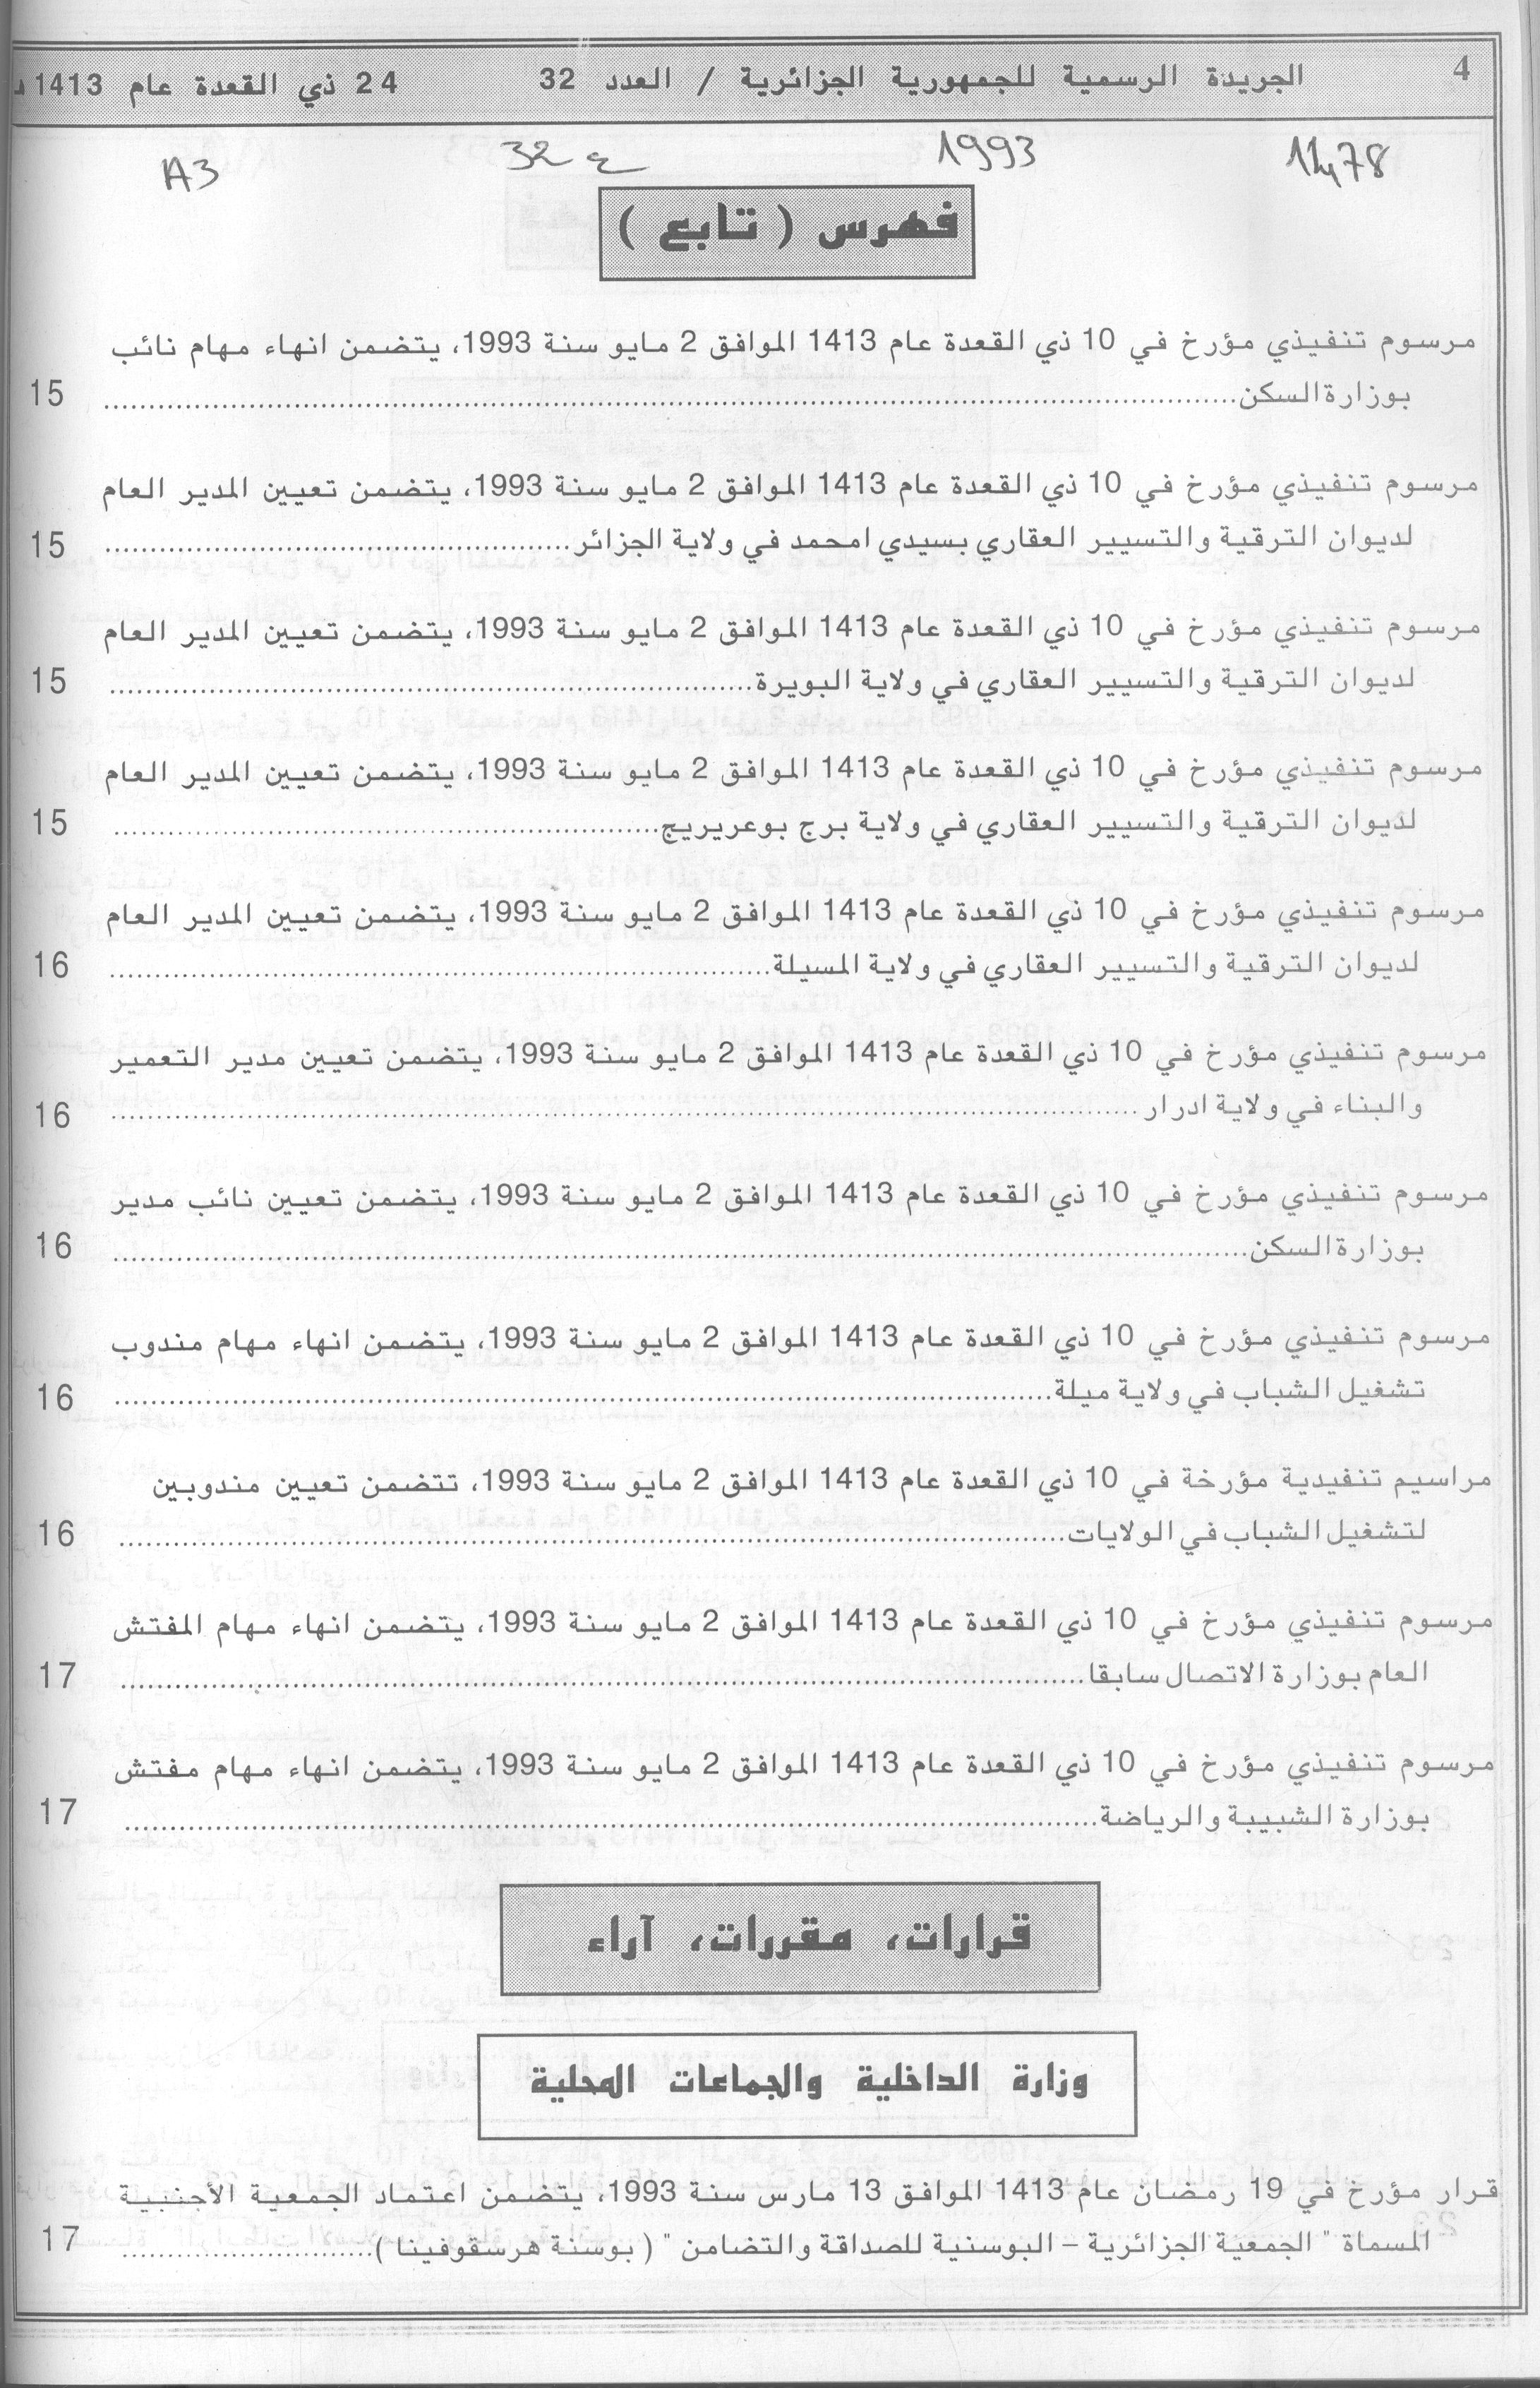 4
الجريدة الرسمية للجمهورية الجزائرية / العدد 32
24 ذي القعدة عام 1413
1993
ع 32
A3
فهرس ( تابع )
مرسوم تنفيذي مؤرخ في 10 ذي القعدة عام 1413 الموافق 2 مايو سنة 1993، يتضمن انهاء مهام نائب
بوزارة السكن 15
مرسوم تنفيذي مؤرخ في 10 ذي القعدة عام 1413 الموافق 2 مايو سنة 1993، يتضمن تعيين المدير العام
لديوان الترقية والتسيير العقاري بسيدي امحمد في ولاية الجزائر 15
مرسوم تنفيذي مؤرخ في 10 ذي القعدة عام 1413 الموافق 2 مايو سنة 1993، يتضمن تعيين المدير العام
لديوان الترقية والتسيير العقاري في ولاية البويرة 15
مرسوم تنفيذي مؤرخ في 10 ذي القعدة عام 1413 الموافق 2 مايو سنة 1993، يتضمن تعيين المدير العام
لديوان الترقية والتسيير العقاري في ولاية برج بوعريريج 15
مرسوم تنفيذي مؤرخ في 10 ذي القعدة عام 1413 الموافق 2 مايو سنة 1993، يتضمن تعيين المدير العام
لديوان الترقية والتسيير العقاري في ولاية المسيلة 16
مرسوم تنفيذي مؤرخ في 10 ذي القعدة عام 1413 الموافق 2 مايو سنة 1993، يتضمن تعيين مدير التعمير
والبناء في ولاية ادرار 16
مرسوم تنفيذي مؤرخ في 10 ذي القعدة عام 1413 الموافق 2 مايو سنة 1993، يتضمن تعيين نائب مدير
بوزارة السكن 16
مرسوم تنفيذي مؤرخ في 10 ذي القعدة عام 1413 الموافق 2 مايو سنة 1993، يتضمن انهاء مهام مندوب
تشغيل الشباب في ولاية ميلة 16
مراسيم تنفيدية مؤرخة في 10 ذي القعدة عام 1413 الموافق 2 مايو سنة 1993، تتضمن تعيين مندوبين
لتشغيل الشباب في الولايات 16
مرسوم تنفيذي مؤرخ في 10 ذي القعدة عام 1413 الموافق 2 مايو سنة 1993، يتضمن انهاء مهام المفتش
العام بوزارة الاتصال سابقا 17
مرسوم تنفيذي مؤرخ في 10 ذي القعدة عام 1413 الموافق 2 مايو سنة 1993، يتضمن انهاء مهام مفتش
بوزارة الشبيبة والرياضة 17
قرارات، مقررات، آراء
وزارة الداخلية والجماعات المحلية
قرار مؤرخ في 19 رمضان عام 1413 الموافق 13 مارس سنة 1993، يتضمن اعتماد الجمعية الأجنبية
المسماة " الجمعية الجزائرية – البوسنية للصداقة والتضامن " ( بوسنة هرسقوفينا ) 17